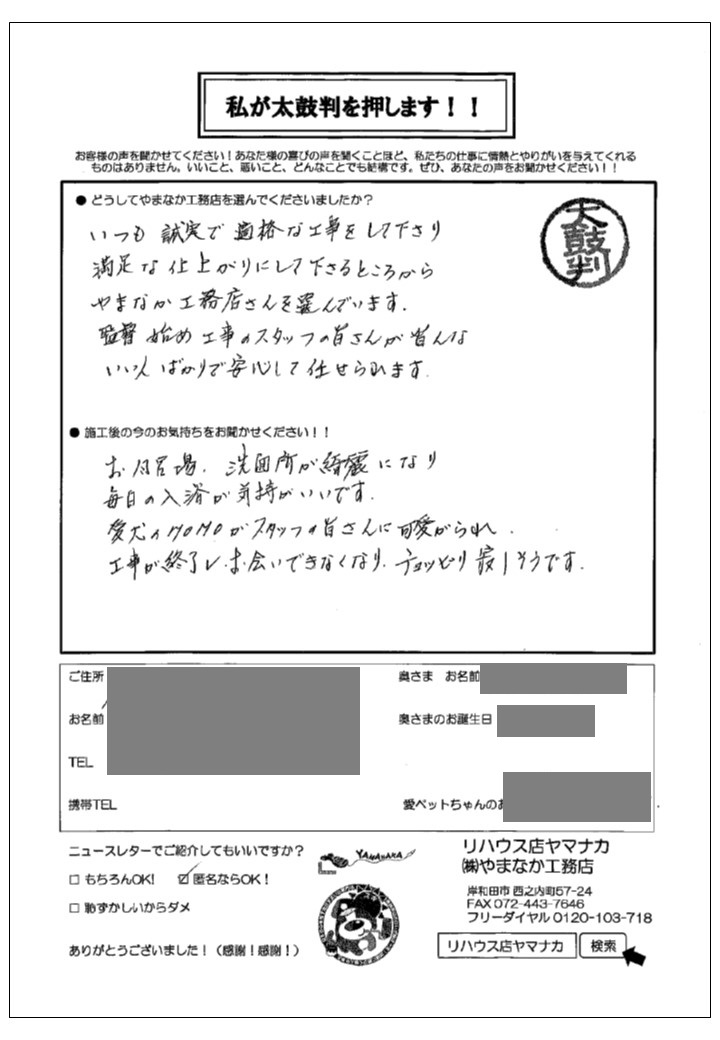 私が太鼓判を押します！！
お客様の声を聞かせてください！あなた様の喜びの声を聞くことほど、私たちの仕事に情熱とやりがいを与えてくれる
ものはありません。いいこと、悪いこと、どんなことでも結構です。ぜひ、あなたの声をお聞かせください！！
● どうしてやまなか工務店を選んでくださいましたか？
太鼓判
いつも 誠実で 適格な工事をして下さり
満足な仕上がりにして下さるところから
やまなか工務店さんを選んでいます.
監督始め工事のスタッフの皆さんが皆んな
いい人ばかりで安心して任せられます.
● 施工後の今のお気持ちをお聞かせください！！
お風呂場、洗面所が綺麗になり
毎日の入浴が気持がいいです.
愛犬のMOMOがスタッフの皆さんに可愛がられ、
工事が終了しお会いできなくなり、チョッピリ寂しそうです.
ご住所
奥さま お名前
お名前
奥さまのお誕生日
TEL
携帯TEL
愛ペットちゃんのお
ニュースレターでご紹介してもいいですか？
□ もちろんOK! ☑ 匿名ならOK！
□ 恥ずかしいからダメ
ありがとうございました！（感謝！感謝！）
YAMANAKA
リハウス店ヤマナカ
㈱やまなか工務店
岸和田市西之内町57-24
FAX 072-443-7646
フリーダイヤル 0120-103-718
リハウス店ヤマナカ 検索